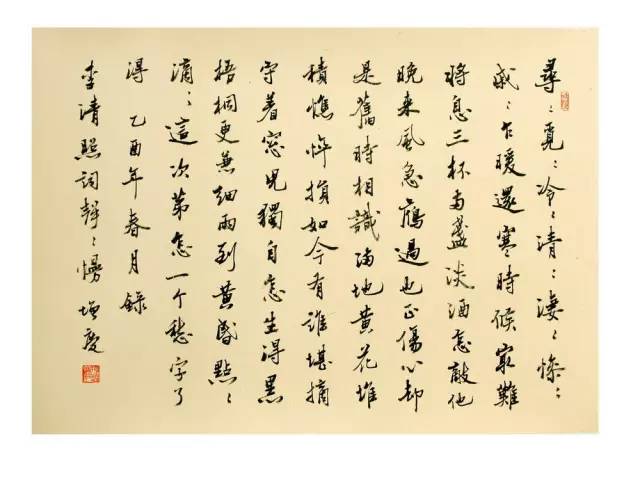 尋〻覓〻冷〻清〻淒〻慘〻
戚〻乍暖還寒時候最難
將息三杯兩盞淡酒怎敵他
晚来風急鴈過也正傷心却
是舊時相識滿地黄花堆
積憔悴損如今有誰堪摘
守着窓兒獨自怎生得黑
梧桐更兼細雨到黄昏點〻
滴〻這次第怎一个愁字了
得 乙酉年春月錄
李清照詞聲〻慢 慶